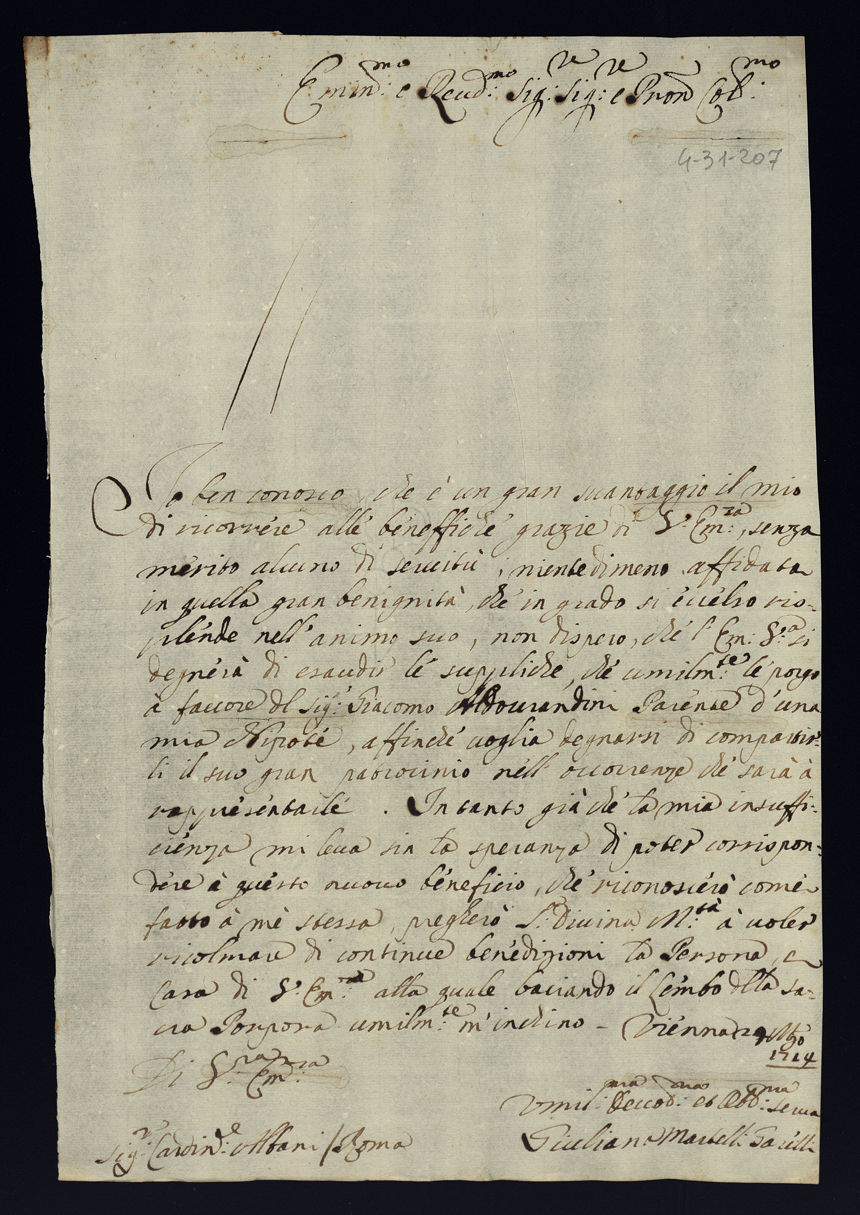 Emin.mo e Reud.mo Sig.re Sig.re e Pron Col.mo
4-31-207
Io ben conosco, che è un gran suantaggio il mio
di ricorrere alle benefficie grazie di V. Em.za, senza
merito alcuno di seruitù; nientedimeno affidata
in quella gran benignità, che in grado si eccelso ris-
plende nell'animo suo, non dispero, che l'Em. V.a si
degnerà di esaudir le suppliche, che umilm.te le porgo
à fauore del Sig.r Giacomo Aldourandini Parente d'una
mia Nipote, affinche uoglia degnarsi di compartir-
li il suo gran patrocinio nell'occorrenze che sarà à
rappresentarle. Intanto già che la mia insuffi-
cienza mi leua sin la speranza di poter corrispon-
dere à questo nuouo beneficio, che riconoscerò come
fatto à me stessa, pregherò S. Diuina M.tà à uoler
ricolmare di continue benedizioni la Persona, e
Casa di V. Em.za alla quale baciando il Lembo della sa-
cra Porpora umilm.te m'inchino - Vienna
1714
Di V.ra Em.za
Vmil.ma Deuod.ma et Obb.ma serua
Sig.r Cardin.le Albani / Roma
Giuliana Martelli